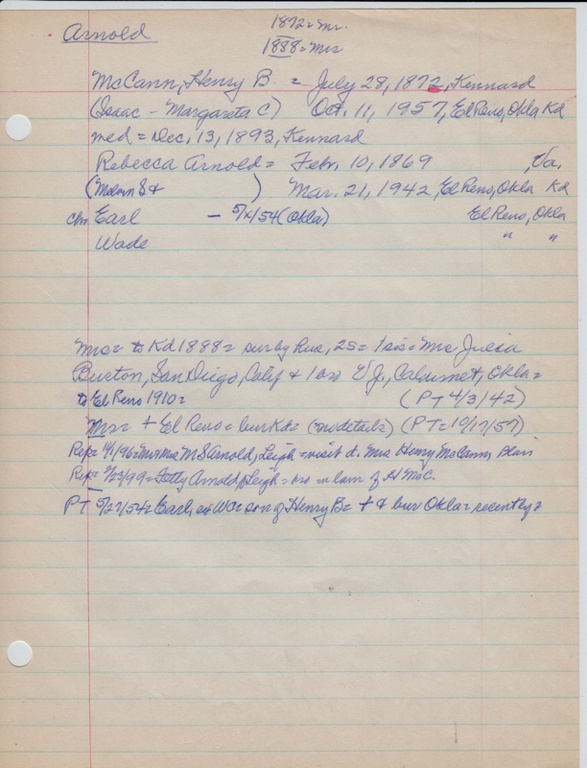 Arnold
1872 = Mr.
1888 = Mrs
McCann, Henry B. = July 28, 1872, Kennard
(Isaac - Margareta C) Oct. 11, 1957, El Reno, Okla Kd
med = Dec. 13, 1893, Kennard
Rebecca Arnold = Febr. 10, 1869 , Va.
( S & ) Mar. 21, 1942, El Reno, Okla Kd
chn Earl - 5/x/54 (Okla) El Reno, Okla
Wade " "
Mrs = to Kd 1888 = sur by Hus, 2S = 1 sis = Mrs Julia
Burton, San Diego, Calif & 1 bro W J., Calumet, Okla =
to El Reno 1910 = (PT 4/3/42)
Mr = + El Reno = bur Kd = (no details) (PT = 10/17/57)
Rep = 4/1/96 = Mr & Mrs M S Arnold, Leigh = visit d. Mrs Henry McCann, Blair
Rep = /23/99 = Arnold, Leigh = bro in law of H McC.
PT 5/27/54 = Earl, ex WC = son of Henry B = + & bur Okla = recently =